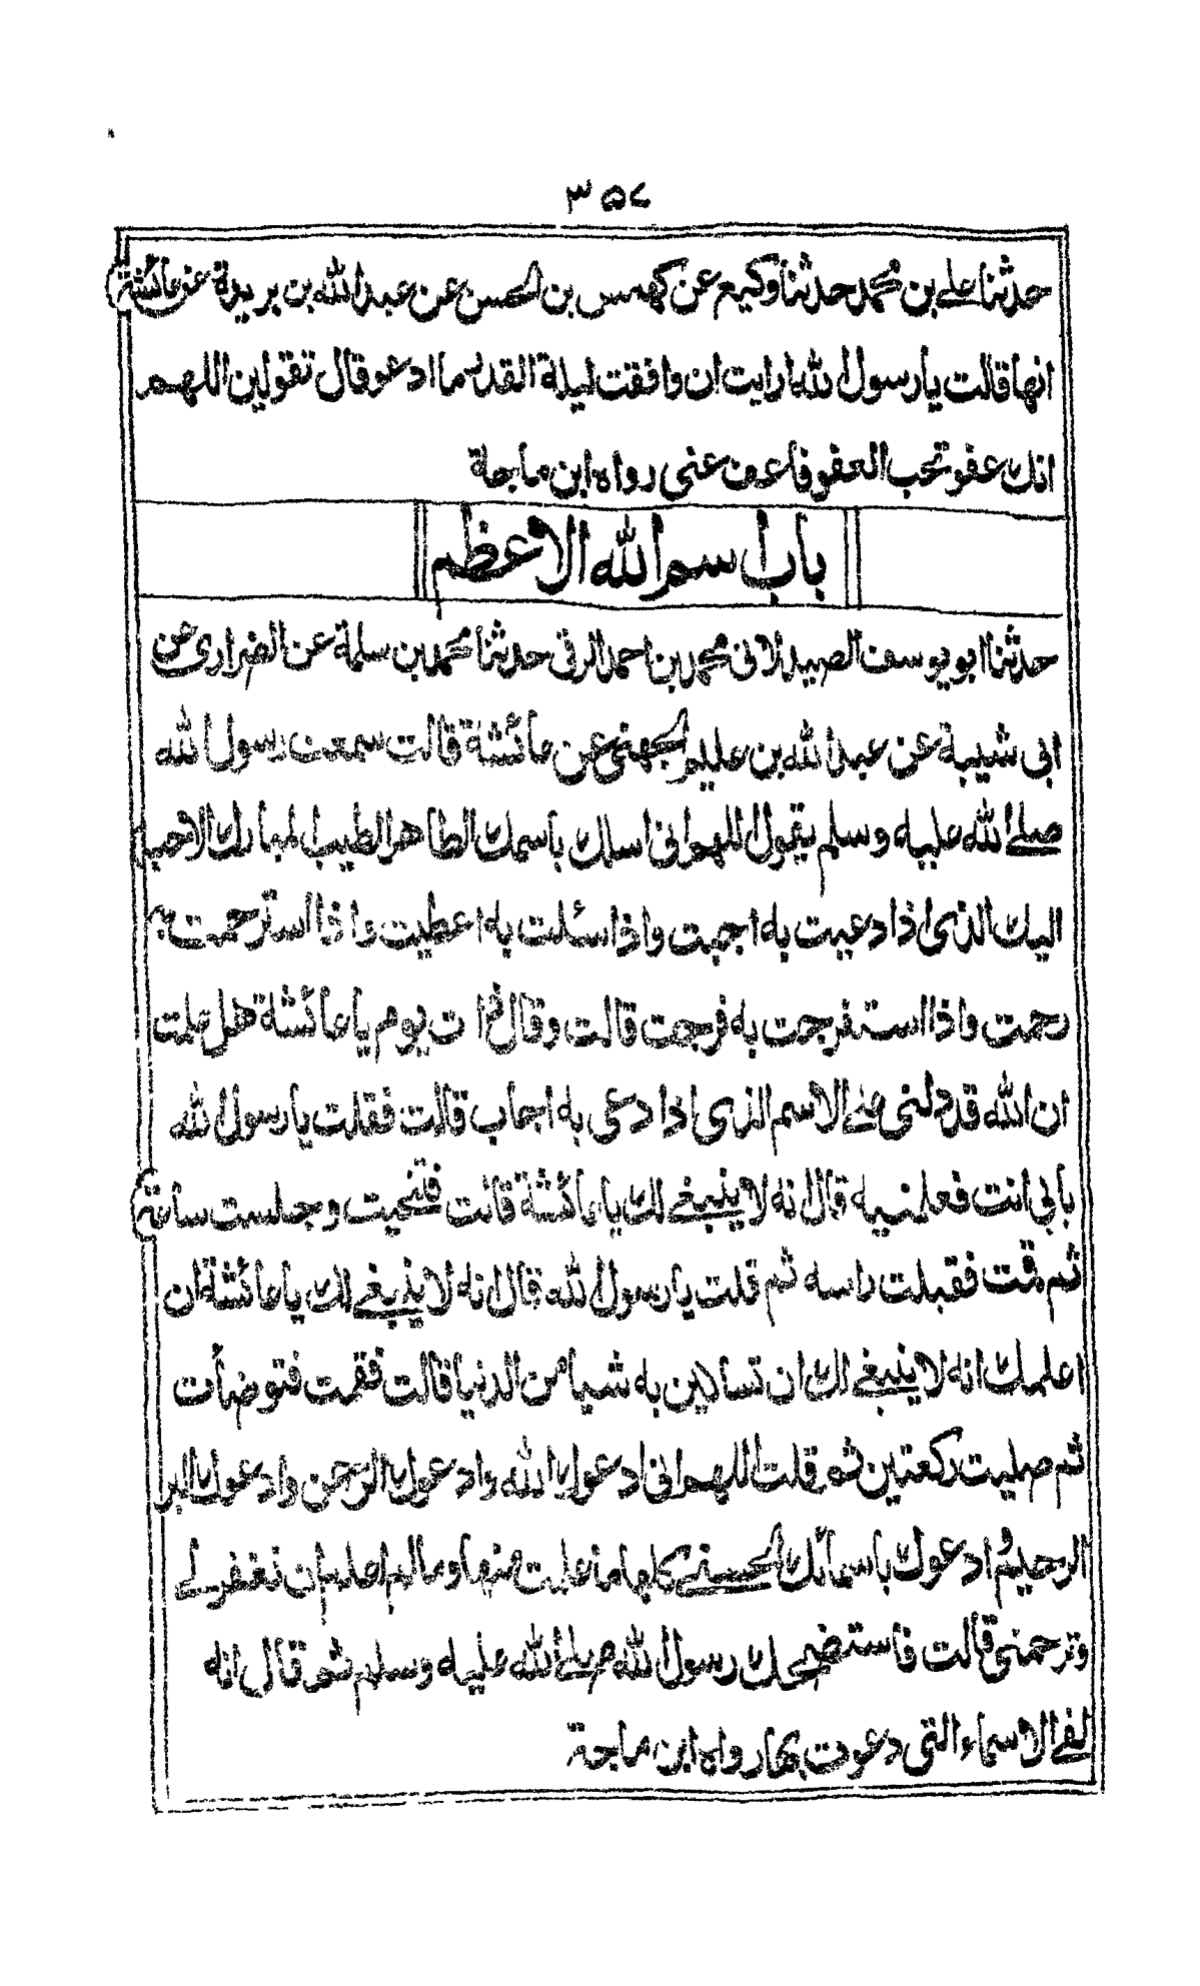 ٣٥٧
حدثنا علي بن محمد حدثنا وكيع عن كهمس بن الحسن عن عبد الله بن بريدة عن عائشة
انها قالت يا رسول الله ارايت ان وافقت ليلة القدر ما ادعو قال تقولين اللهم
انك عفو تحب العفو فاعف عني رواه ابن ماجة
باب اسم الله الاعظم
حدثنا ابو يوسف الصيدلاني محمد بن احمد الرقي حدثنا محمد بن سلمة عن الفزاري عن
ابي شيبة عن عبد الله بن عليم الجهني عن عائشة قالت سمعت رسول الله
صلى الله عليه وسلم يقول اللهم اني اسلك باسمك الطاهر الطيب المبارك الاحب
اليك الذي اذا دعيت به اجبت واذا سئلت به اعطيت واذا استرحمت به
رحمت واذا استفرجت به فرجت قالت وقال ذات يوم يا عائشة هل علمت
ان الله قد دلني على الاسم الذي اذا دعي به اجاب قالت فقلت يا رسول الله
بابي انت فعلمنيه قال انه لا ينبغي لك يا عائشة قالت فتنحيت وجلست ساعة
ثم قمت فقبلت راسه ثم قلت يا رسول الله قال انه لا ينبغي لك يا عائشة ان
اعلمك انه لا ينبغي لك ان تسالين به شيا من الدنيا قالت فقمت فتوضأت
ثم صليت ركعتين ثم قلت اللهم اني ادعوك الله وادعوك الرحمن وادعوك البر
الرحيم وادعوك باسمائك الحسنى كلها ما علمت منها وما لم اعلم ان تغفر لي
وترحمني قالت فاستضحك رسول الله صلى الله عليه وسلم ثم قال انه
لفي الاسماء التي دعوت بها رواه ابن ماجة